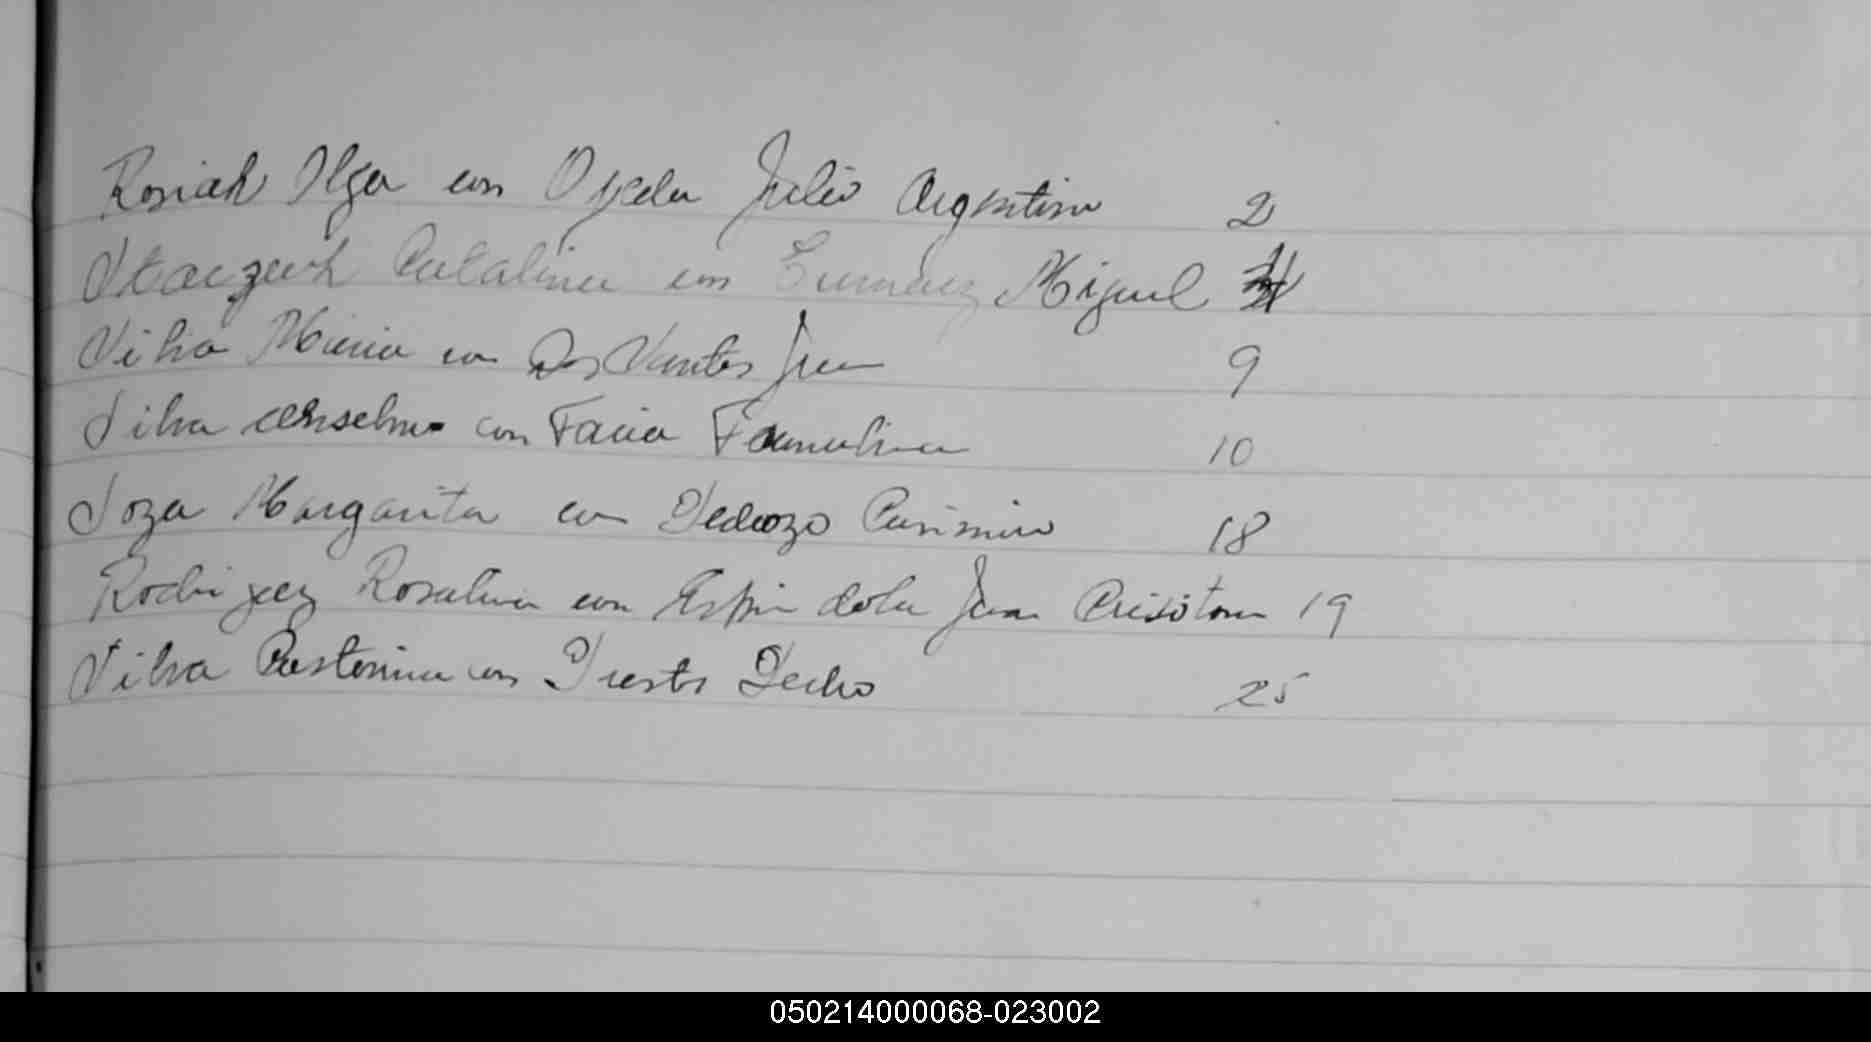 Rosiak Olga con Ojeda Julio Argentino 2
Staczuk Catalina con Miguel
Silva Maria con Dos Santos Juan 9
Silva Anselmo con Faria 10
Soza Margarita con Pedrozo Casimiro 18
Rodriguez Rosalina con Espindola Juan Crisotomo 19
Silva con Pedro 25
050214000068-023002